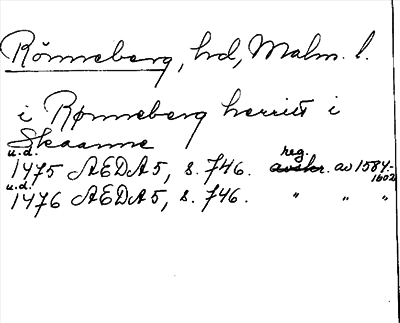 Rönneberg, hd, Malm. l.
i Rønneberg herrit i
Skaanne
u.d.
1475 AEDA 5, s. 746. reg. av 1584-
1602
u.d.
1476 AEDA 5, s. 746. " " "